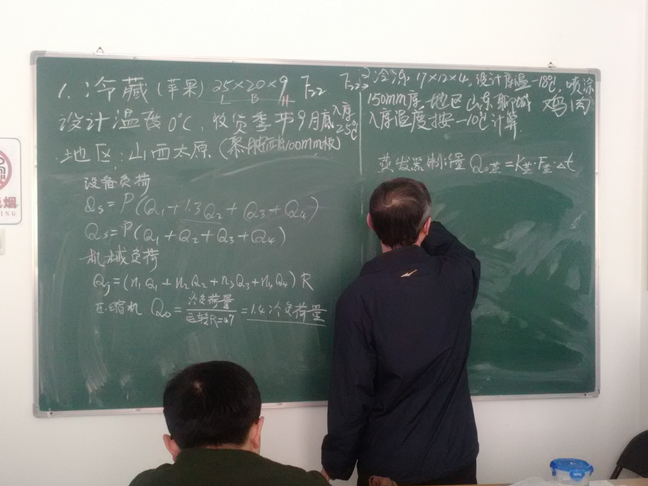 1. 冷藏 (苹果) 25×20×9 F22
L B H
设计温度 0℃, 收货季节9月底 入库25℃
地区: 山西太原 (聚 100mm板)
设备负荷
Qs = P(Q1+1.3Q2+Q3+Q4)
Qs = P(Q1+Q2+Q3+Q4)
机械负荷
Qj = (n1Q1+n2Q2+n3Q3+n4Q4) R
压缩机 Q0 = 冷负荷量/运转 = 1.4冷负荷量
F22 2 冷冻 17×12×4, 设计库温-18℃, 喷涂
150mm厚 地区 山东 鸡(肉)
入库温度按-10℃计算.
蒸发器制冷量 Q0蒸=K蒸·F蒸·Δt
烟
ING